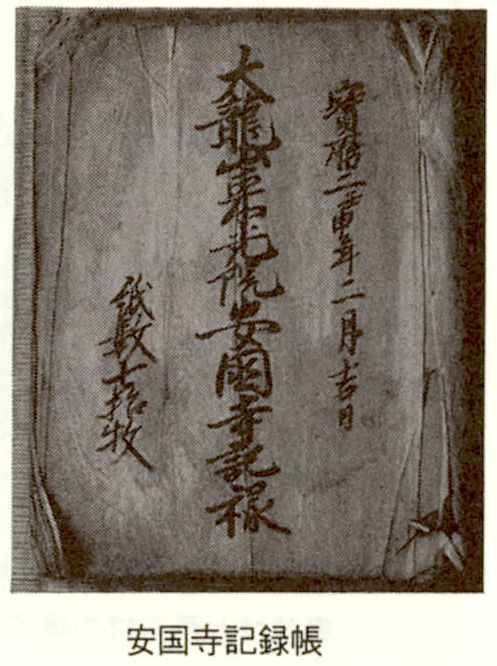 寶暦二壬申年二月吉日
大龍山東光院安國寺記禄
紙数七拾枚
安国寺記録帳